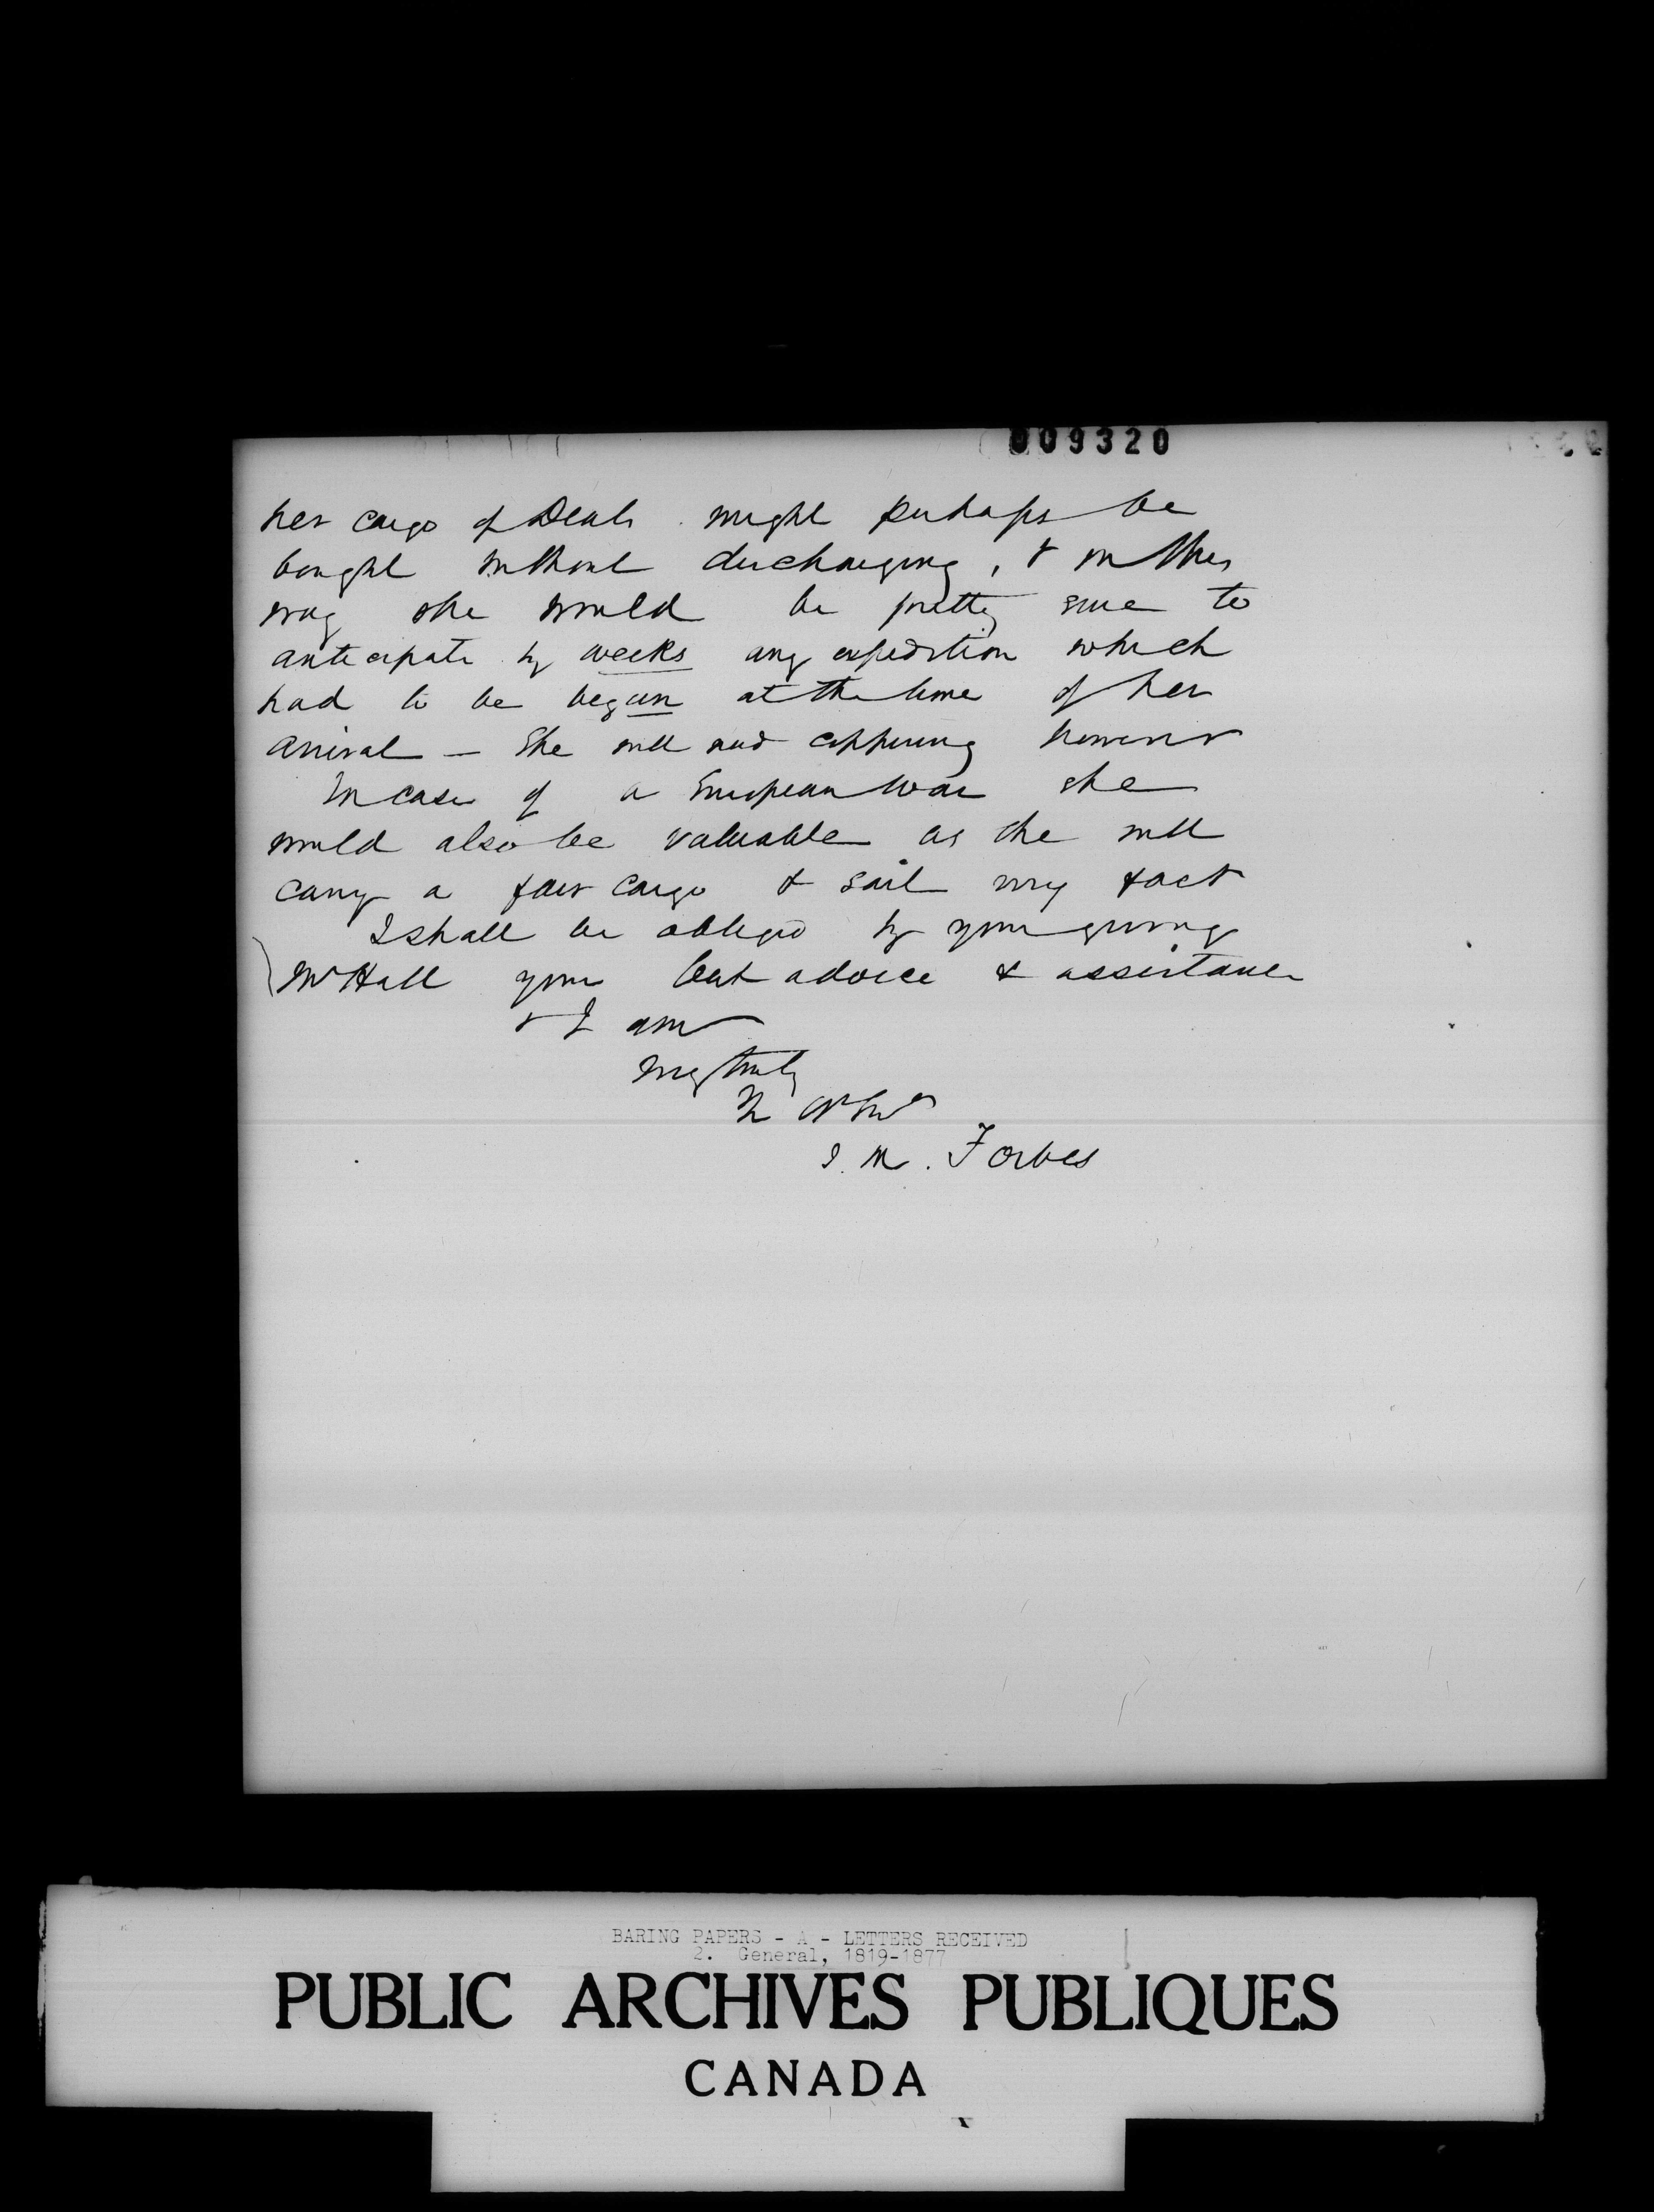 009320
her cargo of Deals might perhaps be
bought without discharging, & in this
way she would be pretty sure to
anticipate by weeks any expedition which
had to be begun at the time of her
arrival — She will need coppering however
In case of a European War she
would also be valuable as she will
carry a fair cargo & sail very fast
I shall be obliged by your giving
Mr Hall your best advice & assistance
& I am
Very truly
J. M. Forbes
BARING PAPERS - A - LETTERS RECEIVED
2. General, 1819-1877
PUBLIC ARCHIVES PUBLIQUES
CANADA